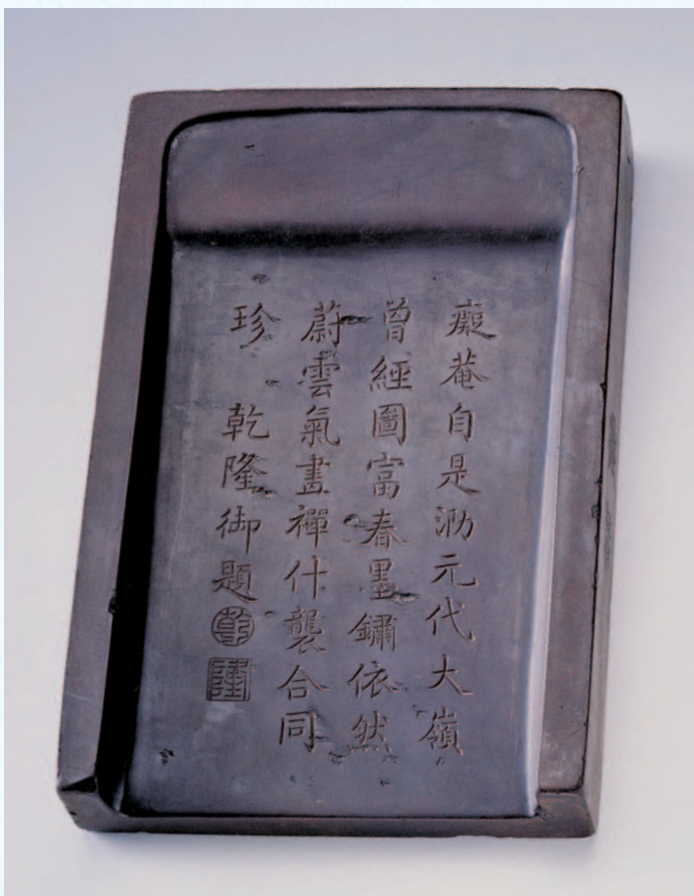 癡菴自是泐元代大嶺
曾經圖富春墨鏽依然
蔚雲氣畫禪什襲合同
珍 乾隆御題
乾
隆